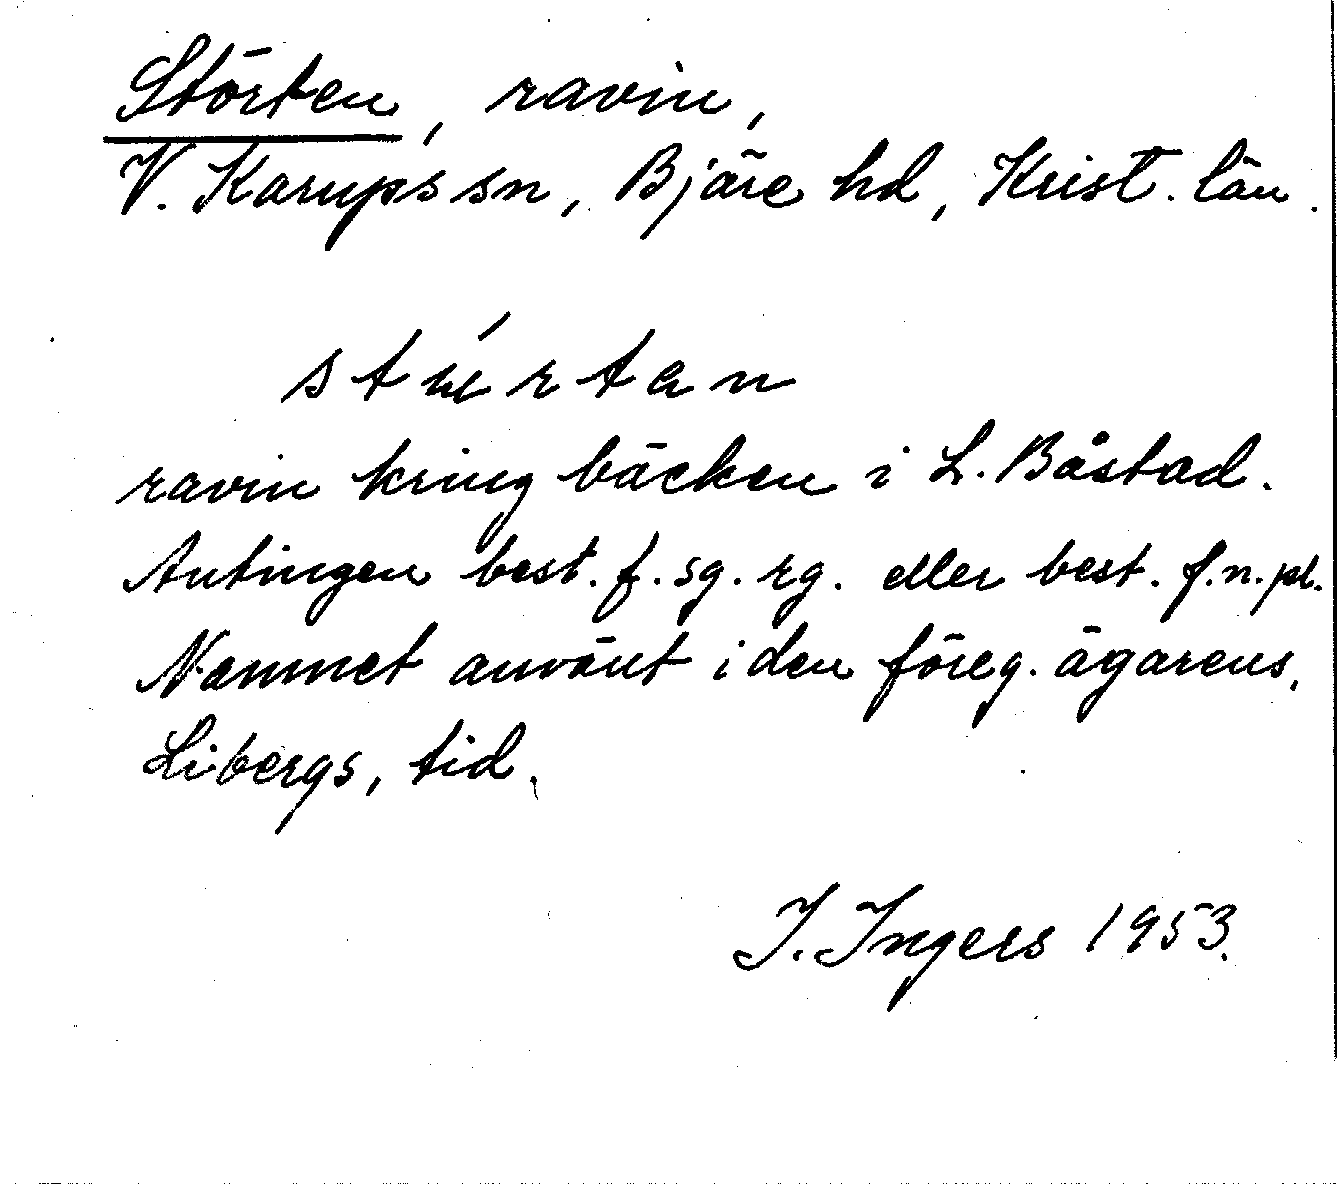 Störten, ravin,
V. Karups sn, Bjäre hd, Krist. län.
stúrtan
ravin kring bäcken i L. Båstad.
Antingen best. f. sg. rg. eller best. f. n. pl.
Namnet använt i den föreg. ägarens,
Libergs, tid.
I. Ingers 1953.